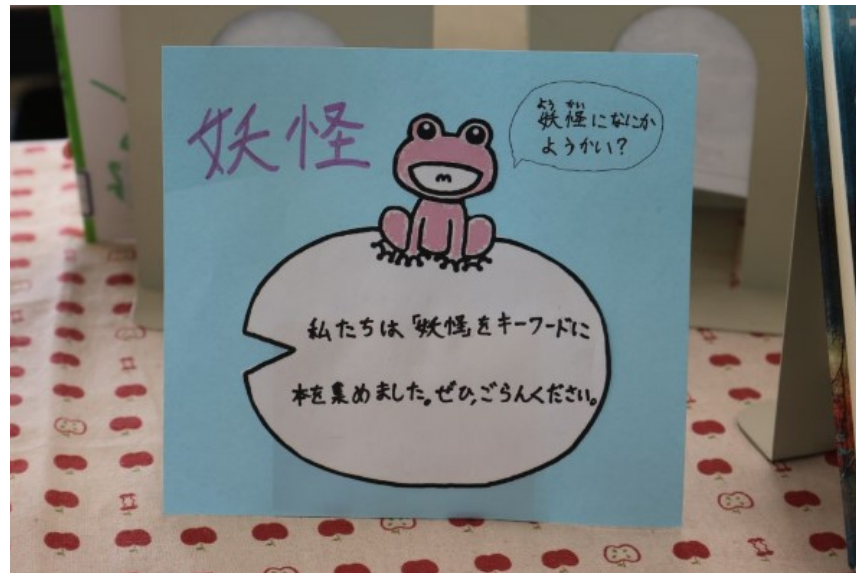 妖怪
よう かい
妖怪になにか
ようかい?
私たちは「妖怪」をキーワードに
本を集めました。ぜひ、ごらんください。